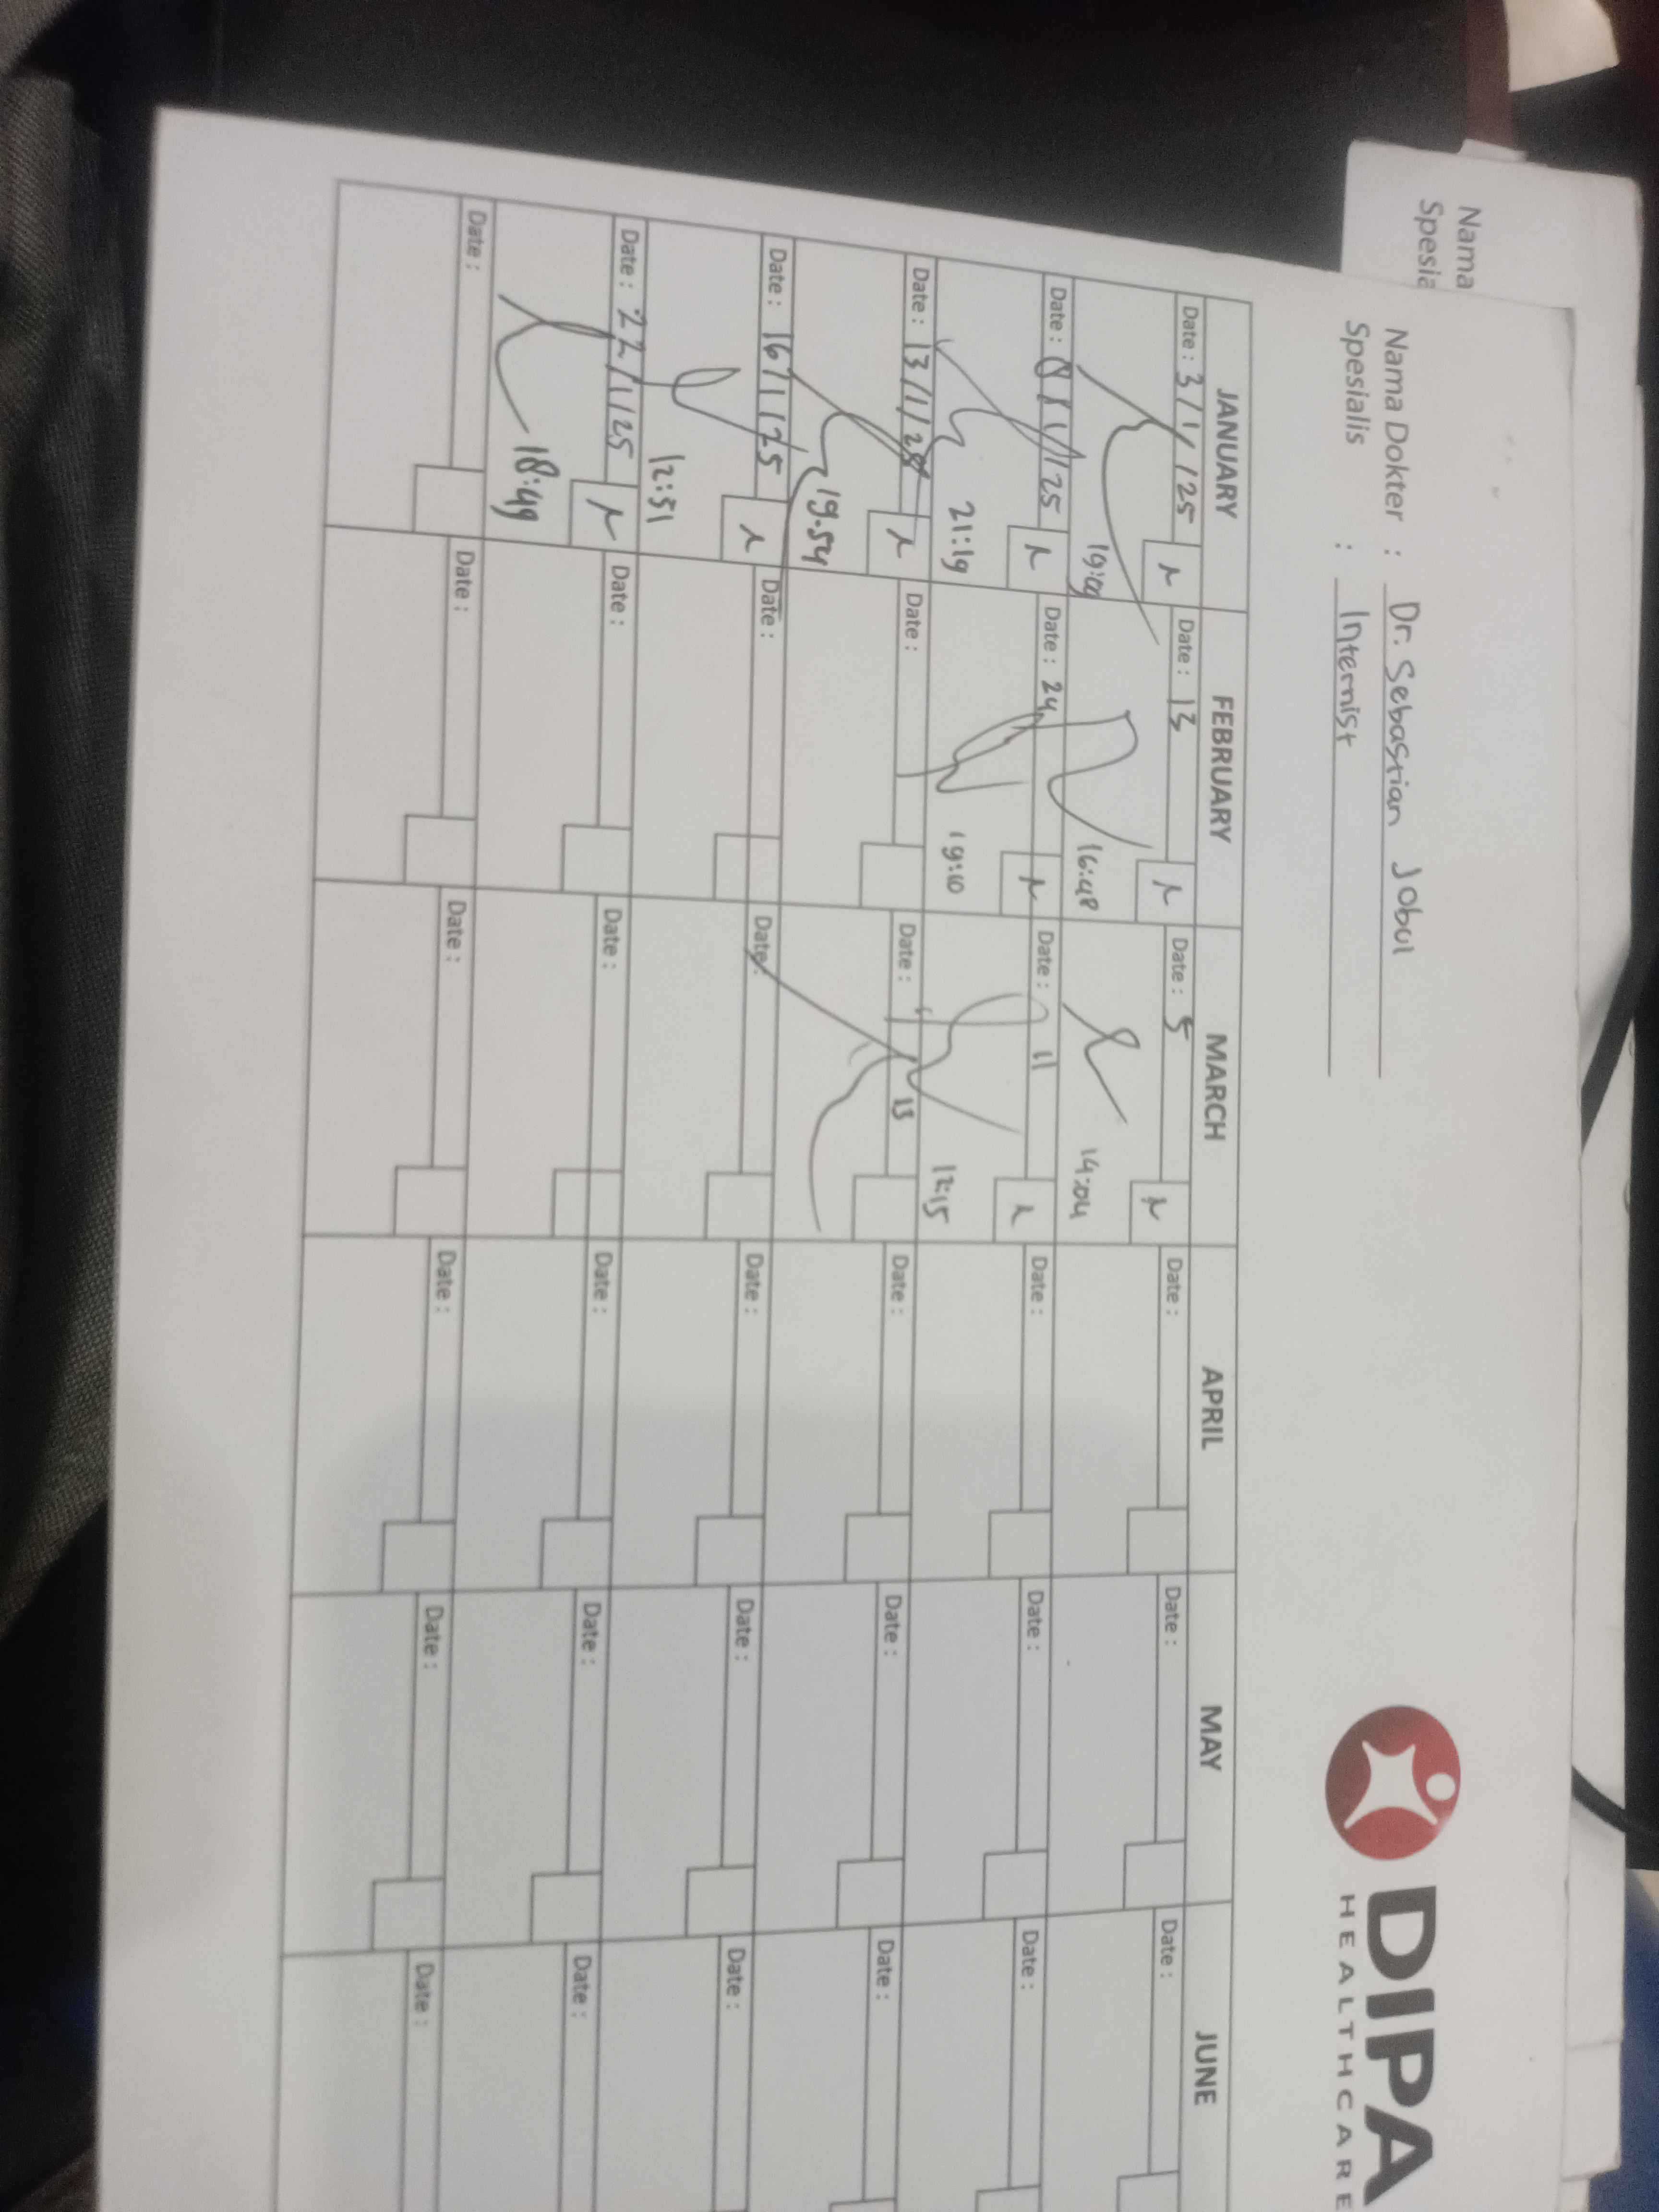 Nama
Spesia
Nama Dokter : Dr. Sebastian Jobul
Spesialis : Internist
DIPA
HEALTHCARE
JANUARY FEBRUARY MARCH APRIL MAY JUNE
Date : 3/1/25 Date : 13 Date : 5 Date : Date : Date :
19:09 16:48 14:04
Date : 8/1/25 Date : 24 Date : 11 Date : Date : Date :
21:19 19:10 12:15
Date : 13/1/25 Date : Date : 13 Date : Date : Date :
19.54
Date : 16/1/25 Date : Date : Date : Date : Date :
12:51
Date : 22/1/25 Date : Date : Date : Date : Date :
18:49
Date : Date : Date : Date : Date : Date :